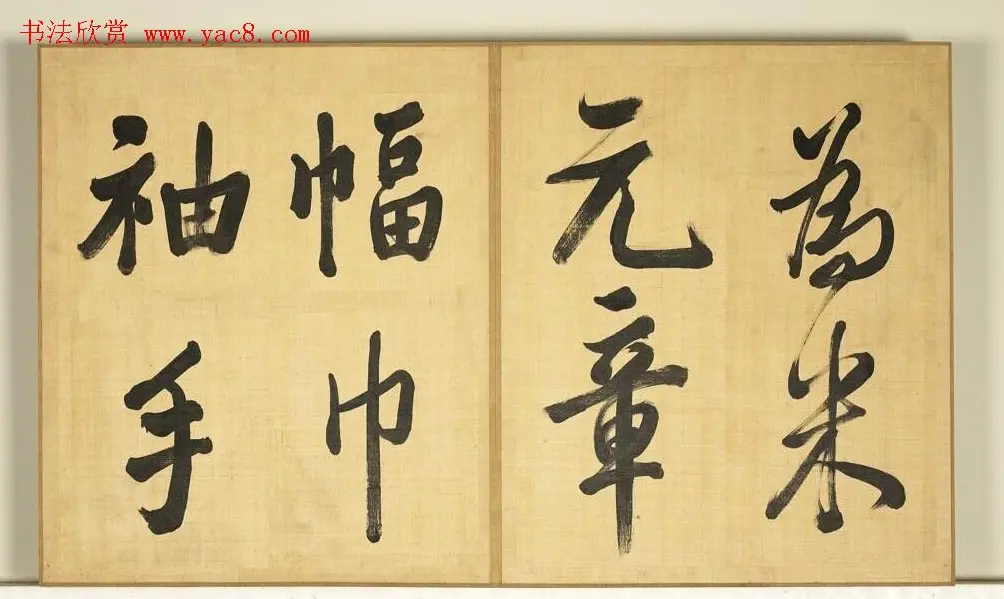 书法欣赏 www.yac8.com
為米
元章
幅巾
袖手